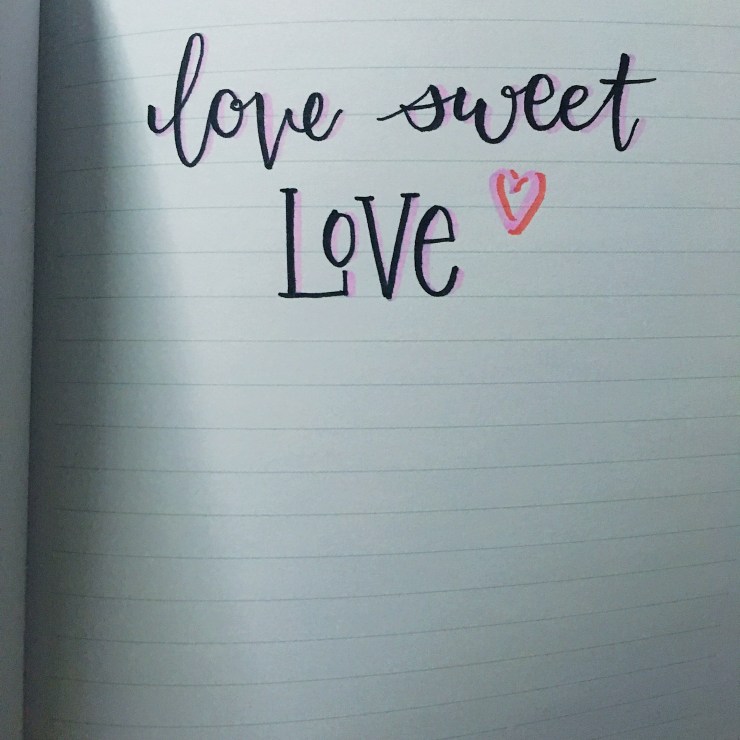 love sweet
LoVe